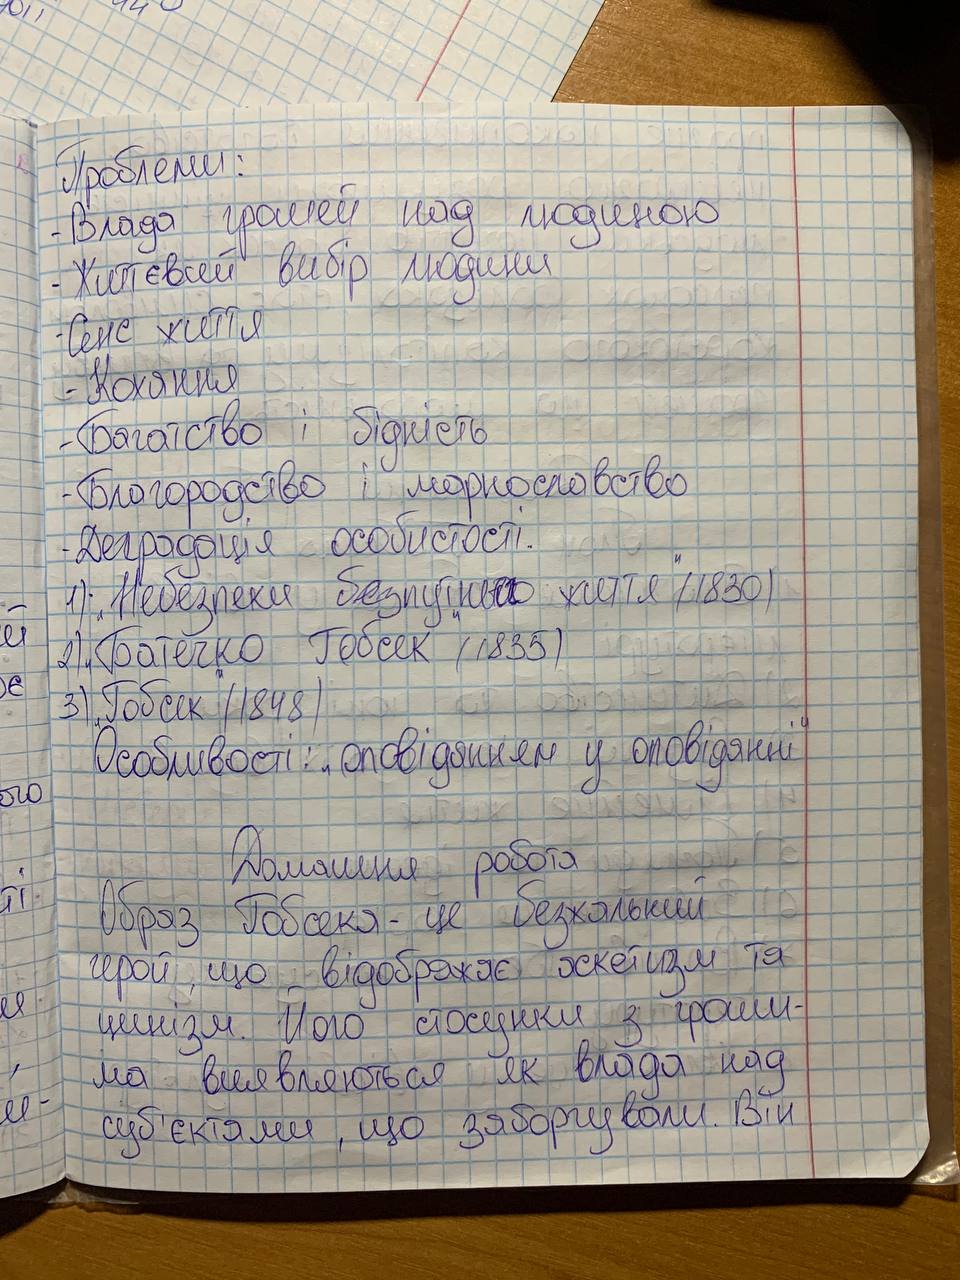 Проблеми:
- Влада грошей над людиною
- Життєвий вибір людини
- Сенс життя
- Кохання
- Багатство і бідність
- Благородство і марнославство
- Деградація особистості.
1) „Небезпеки безпутнього життя" (1830)
2) „Батечко Гобсек" (1835)
3) „Гобсек" (1848)
Особливості: „оповіданням у оповіданні"
Домашня робота
Образ Гобсека - це безжальний
герой, що відображає аскетизм та
цинізм. Його стосунки з гроши-
ма виявляються як влада над
суб'єктами, що заборгували. Він